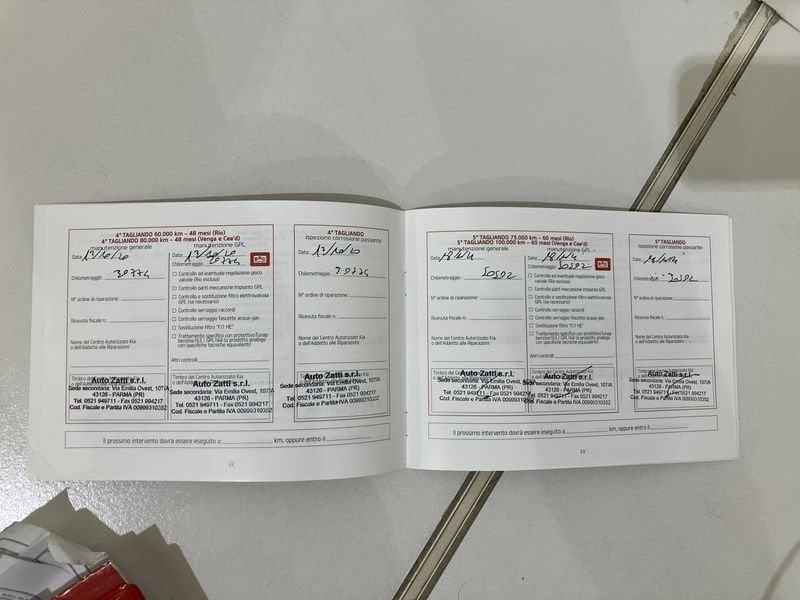 4° TAGLIANDO 60.000 km – 48 mesi (Rio)
4° TAGLIANDO 80.000 km – 48 mesi (Venga e Cee'd)
manutenzione generale
Data
Chilometraggio:
N° ordine di riparazione:
Ricevuta fiscale n.:
Nome del Centro Autorizzato Kia
e dell'Addetto alle Riparazioni
Timbro del Centro Autorizzato Kia
Auto Zatti s.r.l.
Sede secondaria: Via Emilia Ovest, 107/A
43126 - PARMA (PR)
Tel. 0521 949711 - Fax 0521 994217
Cod. Fiscale e Partita IVA 00999310352
manutenzione GPL
Data
Chilometraggio:
Controllo ed eventuale regolazione gioco
valvole (Rio esclusa)
Controllo parti meccaniche impianto GPL
Controllo e sostituzione filtro elettrovalvola
GPL (se necessario)
Controllo serraggio raccordi
Controllo serraggio fascette acqua-gas
Sostituzione filtro "FJ1 HE"
Trattamento specifico con protettivo Tunap
Altri controlli:
Auto Zatti s.r.l.
Sede secondaria: Via Emilia Ovest, 107/A
43126 - PARMA (PR)
Tel. 0521 949711 - Fax 0521 994217
Cod. Fiscale e Partita IVA 00999310352
4° TAGLIANDO
ispezione corrosione passante
Data
Chilometraggio:
N° ordine di riparazione:
Ricevuta fiscale n.:
Nome del Centro Autorizzato Kia
e dell'Addetto alle Riparazioni
Auto Zatti s.r.l.
Sede secondaria: Via Emilia Ovest, 107/A
43126 - PARMA (PR)
Tel. 0521 949711 - Fax 0521 994217
Cod. Fiscale e Partita IVA 00999310352
Il prossimo intervento dovrà essere eseguito a km, oppure entro il
22
5° TAGLIANDO 75.000 km – 60 mesi (Rio)
5° TAGLIANDO 100.000 km – 60 mesi (Venga e Cee'd)
manutenzione generale
Data
Chilometraggio:
50592
N° ordine di riparazione:
Ricevuta fiscale n.:
Nome del Centro Autorizzato Kia
e dell'Addetto alle Riparazioni
Auto Zatti s.r.l.
Sede secondaria: Via Emilia Ovest, 107/A
43126 - PARMA (PR)
Tel. 0521 949711 - Fax 0521 994217
Cod. Fiscale e Partita IVA 00999310352
manutenzione GPL
Data
Chilometraggio: 50592
Controllo ed eventuale regolazione gioco
valvole (Rio esclusa)
Controllo parti meccaniche impianto GPL
Controllo e sostituzione filtro elettrovalvola
GPL (se necessario)
Controllo serraggio raccordi
Controllo serraggio fascette acqua-gas
Sostituzione filtro "FJ1 HE"
Trattamento specifico con protettivo Tunap
Altri controlli:
Auto Zatti s.r.l.
Sede secondaria: Via Emilia Ovest, 107/A
43126 - PARMA (PR)
Tel. 0521 949711 - Fax 0521 994217
Cod. Fiscale e Partita IVA 00999310352
5° TAGLIANDO
ispezione corrosione passante
Data
Chilometraggio:
N° ordine di riparazione:
Ricevuta fiscale n.:
Nome del Centro Autorizzato Kia
e dell'Addetto alle Riparazioni
Auto Zatti s.r.l.
Sede secondaria: Via Emilia Ovest, 107/A
43126 - PARMA (PR)
Tel. 0521 949711 - Fax 0521 994217
Cod. Fiscale e Partita IVA 00999310352
Il prossimo intervento dovrà essere eseguito a km, oppure entro il
23